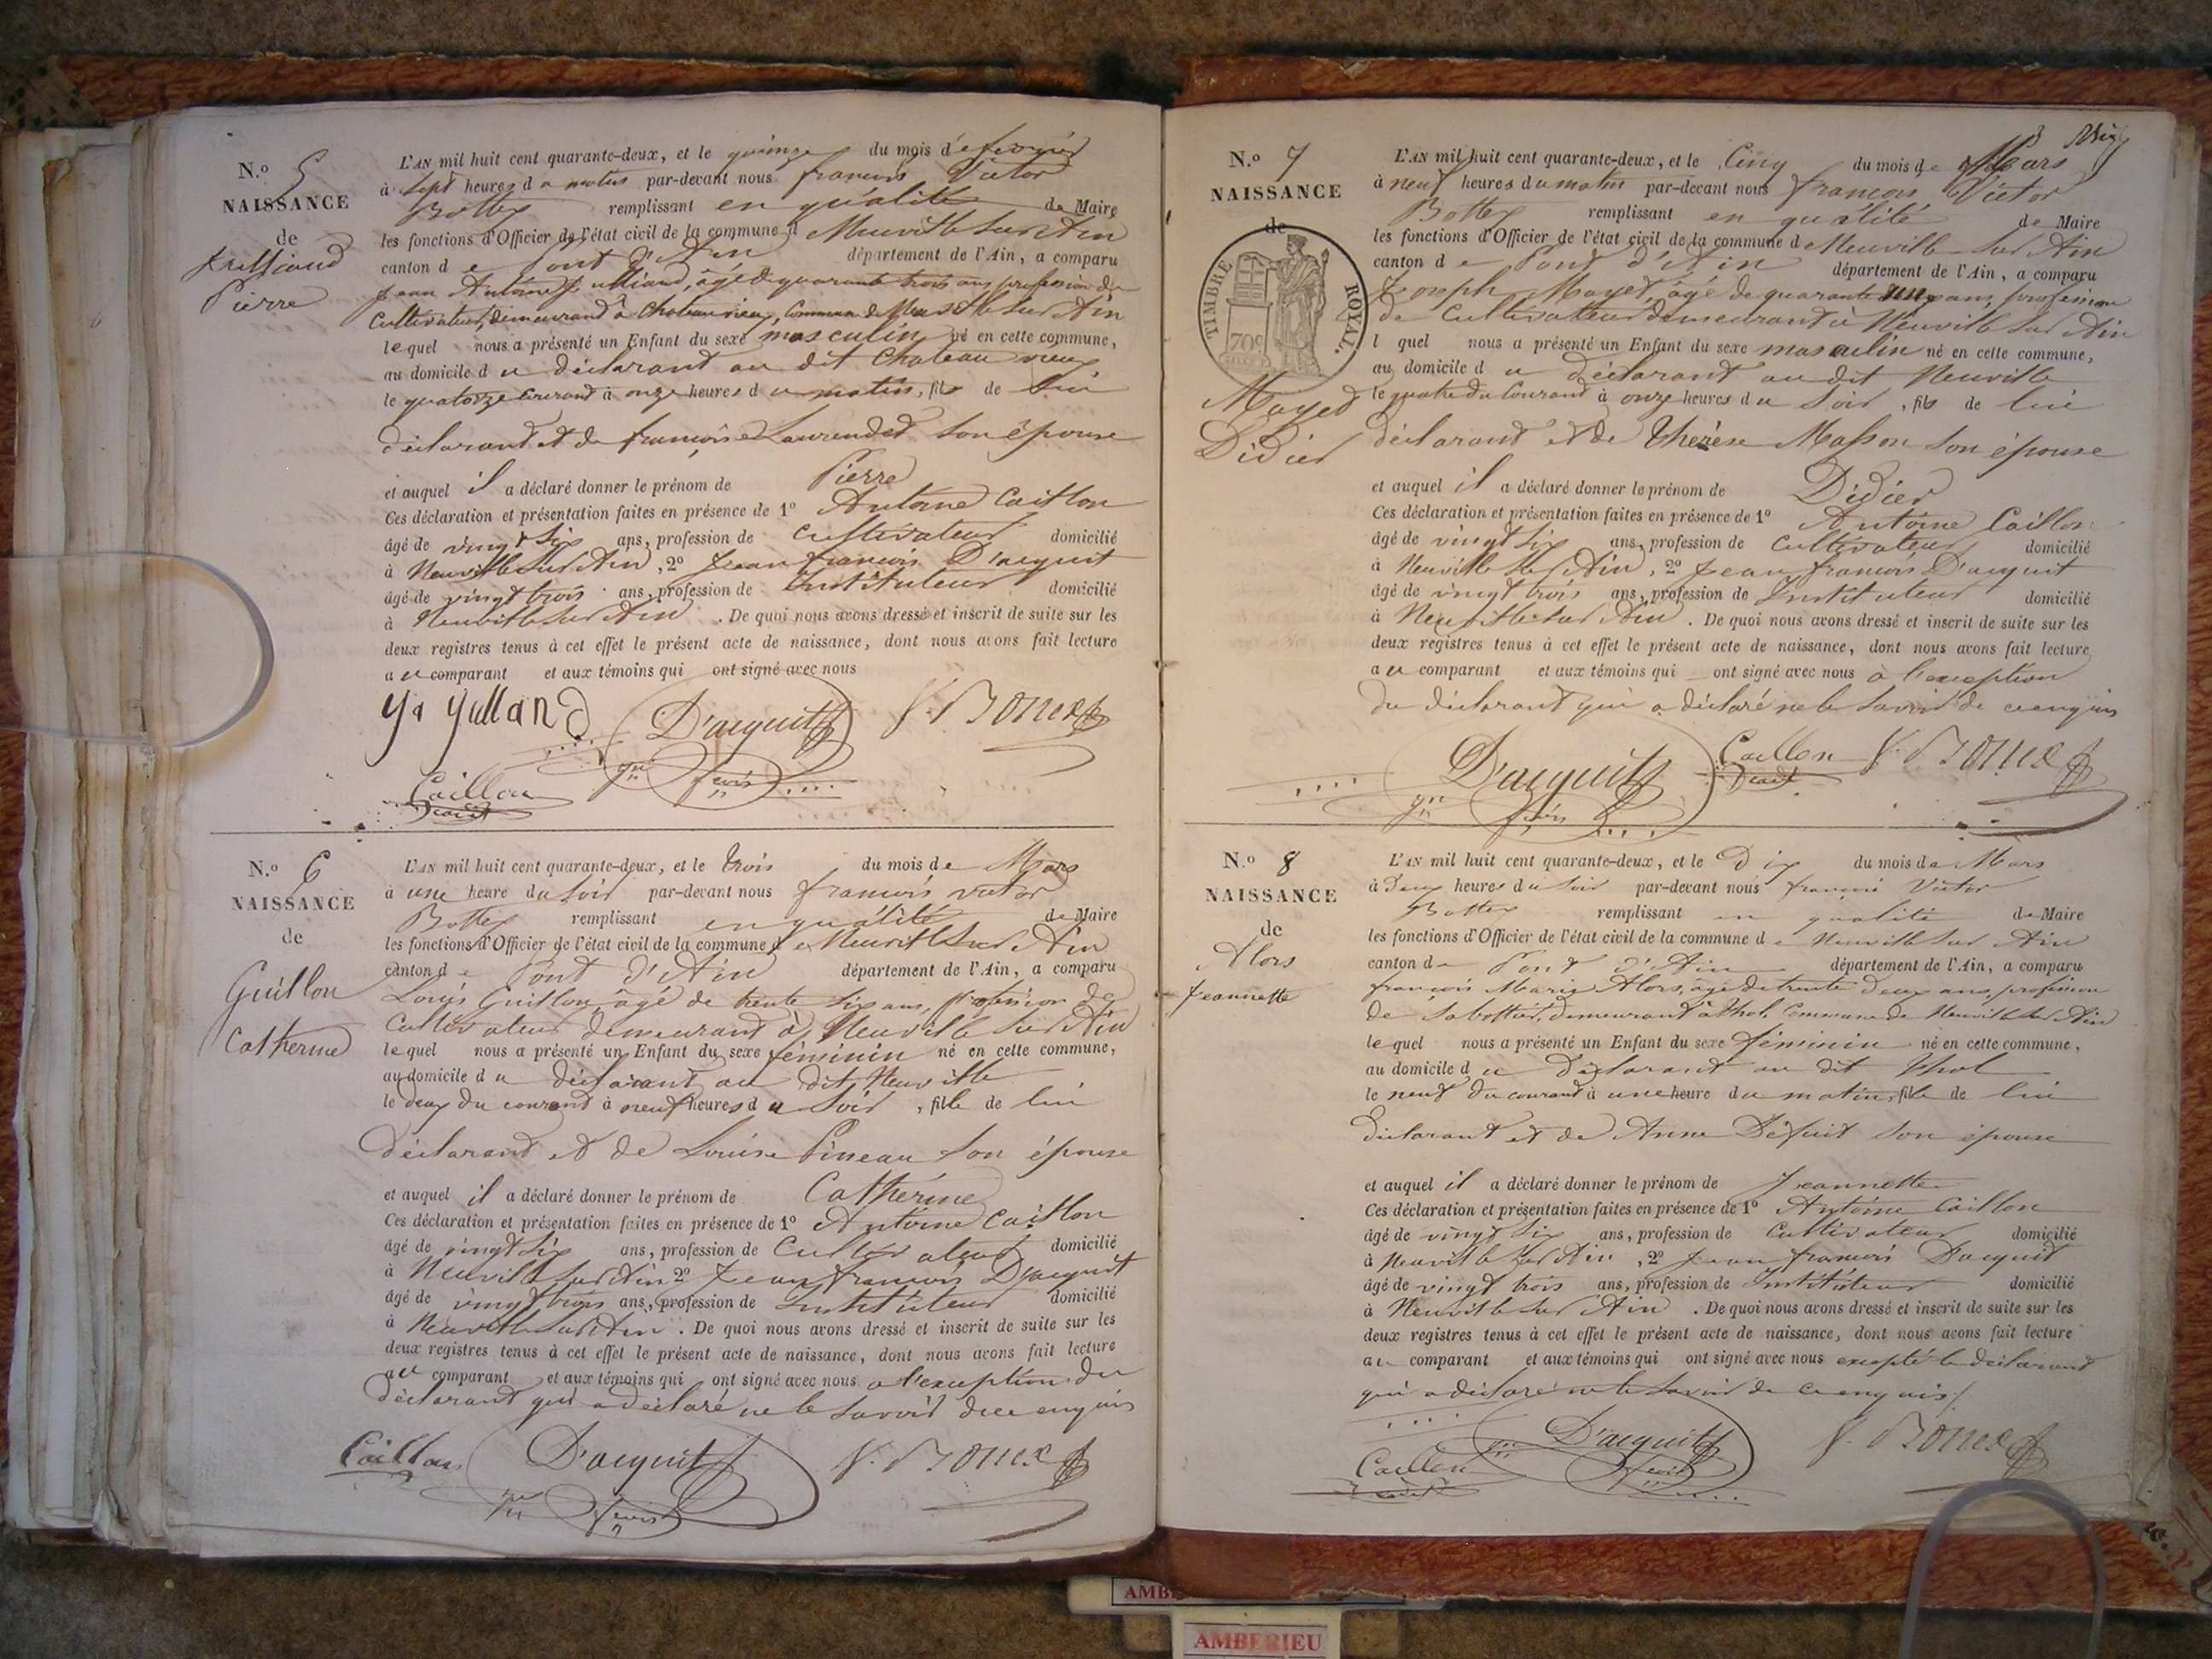 N.o 5
NAISSANCE
de
Pierre
L'AN mil huit cent quarante-deux, et le quinze du mois de fevrier
à sept heures du matin par-devant nous francois Victor
Bottex remplissant en qualité de Maire
les fonctions d'Officier de l'état civil de la commune d Neuville sur Ain
canton de Pont d'Ain département de l'Ain, a comparu
Jean Antoine âgé de quarante trois ans profession de
Cultivateur, demeurant à Chateauvieux, Commune de Neuville sur Ain
lequel nous a présenté un Enfant du sexe masculin né en cette commune,
au domicile du déclarant au dit Chateau vieux
le quatorze Courant à onze heures du matin, fils de lui
déclarant et de francoise Laurendet son épouse
et auquel il a déclaré donner le prénom de Pierre
Ces déclaration et présentation faites en présence de 1o Antoine Caillon
âgé de vingt six ans, profession de Cultivateur domicilié
à Neuville sur Ain, 2o Jean francois D'acquit
âgé de vingt trois ans, profession de Instituteur domicilié
à Neuville sur Ain. De quoi nous avons dressé et inscrit de suite sur les
deux registres tenus à cet effet le présent acte de naissance, dont nous avons fait lecture
au comparant et aux témoins qui ont signé avec nous
D'acquit V. Bottex
Caillon
N.o 6
NAISSANCE
de
Guillon
Catherine
L'AN mil huit cent quarante-deux, et le trois du mois de Mars
à une heure du soir par-devant nous francois victor
Bottex remplissant en qualité de Maire
les fonctions d'Officier de l'état civil de la commune de Neuville sur Ain
canton de Pont d'Ain département de l'Ain, a comparu
Louis Guillon, âgé de trente six ans, profession de
Cultivateur demeurant à Neuville sur Ain
lequel nous a présenté un Enfant du sexe féminin né en cette commune,
au domicile du déclarant au dit Neuville
le deux du courant à neuf heures du soir, fille de lui
déclarant et de Louise Pineau son épouse
et auquel il a déclaré donner le prénom de Catherine
Ces déclaration et présentation faites en présence de 1o Antoine Caillon
âgé de vingt six ans, profession de Cultivateur domicilié
à Neuville sur Ain 2o Jean francois D'acquit
âgé de vingt trois ans, profession de Instituteur domicilié
à Neuville sur Ain. De quoi nous avons dressé et inscrit de suite sur les
deux registres tenus à cet effet le présent acte de naissance, dont nous avons fait lecture
au comparant et aux témoins qui ont signé avec nous a l'exception du
déclarant qui a déclaré ne le savoir de ce enquis
Caillon D'acquit V. Bottex
N.o 7
NAISSANCE
de
TIMBRE ROYAL.
70c
Mayet
Didier
L'AN mil huit cent quarante-deux, et le Cinq du mois de Mars
à neuf heures du matin par-devant nous francois Victor
Bottex remplissant en qualité de Maire
les fonctions d'Officier de l'état civil de la commune de Neuville sur Ain
canton de Pont d'Ain département de l'Ain, a comparu
Joseph Mayet, âgé de quarante ans, profession
de Cultivateur demeurant à Neuville sur Ain
l quel nous a présenté un Enfant du sexe masculin né en cette commune,
au domicile du déclarant au dit Neuville
le quatre du Courant à onze heures du soir, fils de lui
déclarant et de Thérèse Masson son épouse
et auquel il a déclaré donner le prénom de Didier
Ces déclaration et présentation faites en présence de 1o Antoine Caillon
âgé de vingt six ans, profession de Cultivateur domicilié
à Neuville sur Ain, 2o Jean francois D'acquit
âgé de vingt trois ans, profession de Instituteur domicilié
à Neuville sur Ain. De quoi nous avons dressé et inscrit de suite sur les
deux registres tenus à cet effet le présent acte de naissance, dont nous avons fait lecture
au comparant et aux témoins qui ont signé avec nous à l'exception
du déclarant qui a déclaré ne le savoir de ce enquis
D'acquit Caillon V. Bottex
N.o 8
NAISSANCE
de
Alors
Jeannette
L'AN mil huit cent quarante-deux, et le Dix du mois de Mars
à Deux heures du soir par-devant nous francois Victor
Bottex remplissant en qualité de Maire
les fonctions d'Officier de l'état civil de la commune de Neuville sur Ain
canton de Pont d'Ain département de l'Ain, a comparu
francois Marie Alors, âgé de trente Deux ans, profession
de Sabottier, demeurant à Thol, Commune de Neuville sur Ain
lequel nous a présenté un Enfant du sexe féminin né en cette commune,
au domicile du déclarant au dit Thol
le neuf du courant à une heure du matin, fille de lui
déclarant et de Anne son épouse
et auquel il a déclaré donner le prénom de Jeannette
Ces déclaration et présentation faites en présence de 1o Antoine Caillon
âgé de vingt six ans, profession de Cultivateur domicilié
à Neuville sur Ain, 2o Jean francois Dacquit
âgé de vingt trois ans, profession de Instituteur domicilié
à Neuville sur Ain. De quoi nous avons dressé et inscrit de suite sur les
deux registres tenus à cet effet le présent acte de naissance, dont nous avons fait lecture
au comparant et aux témoins qui ont signé avec nous excepté le déclarant
qui a déclaré ne le savoir de ce enquis
Caillon D'acquit V. Bottex
AMBERIEU